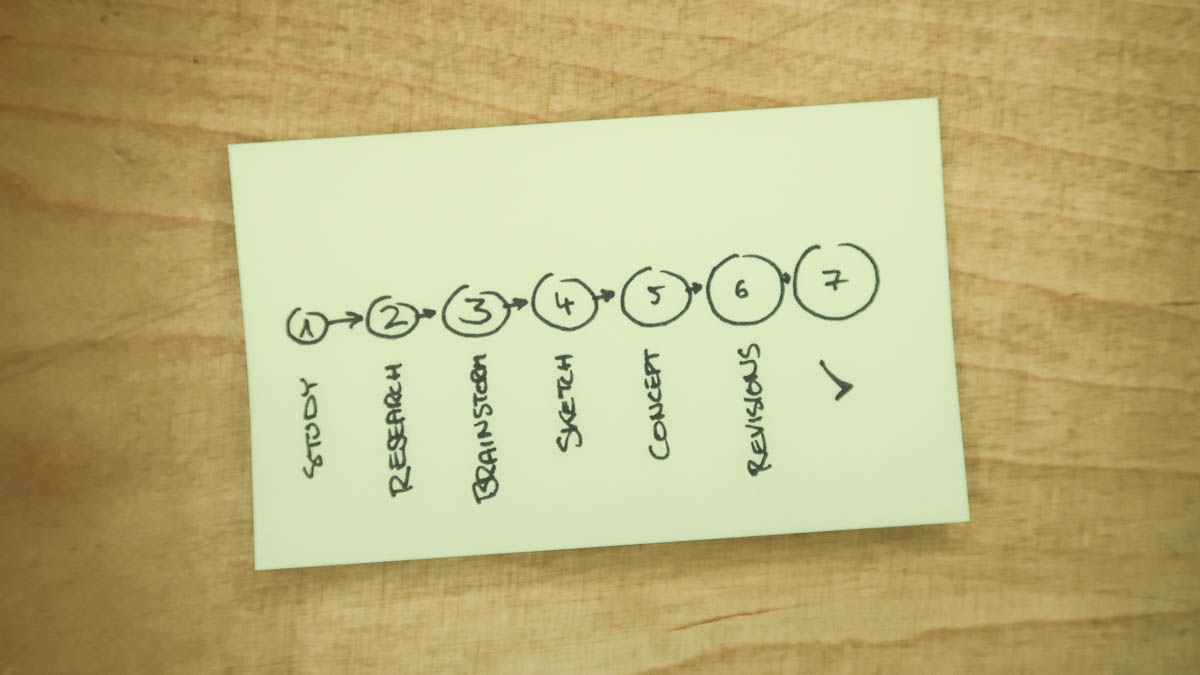 1
2
3
4
5
6
7
STUDY
RESEARCH
BRAINSTORM
SKETCH
CONCEPT
REVISIONS